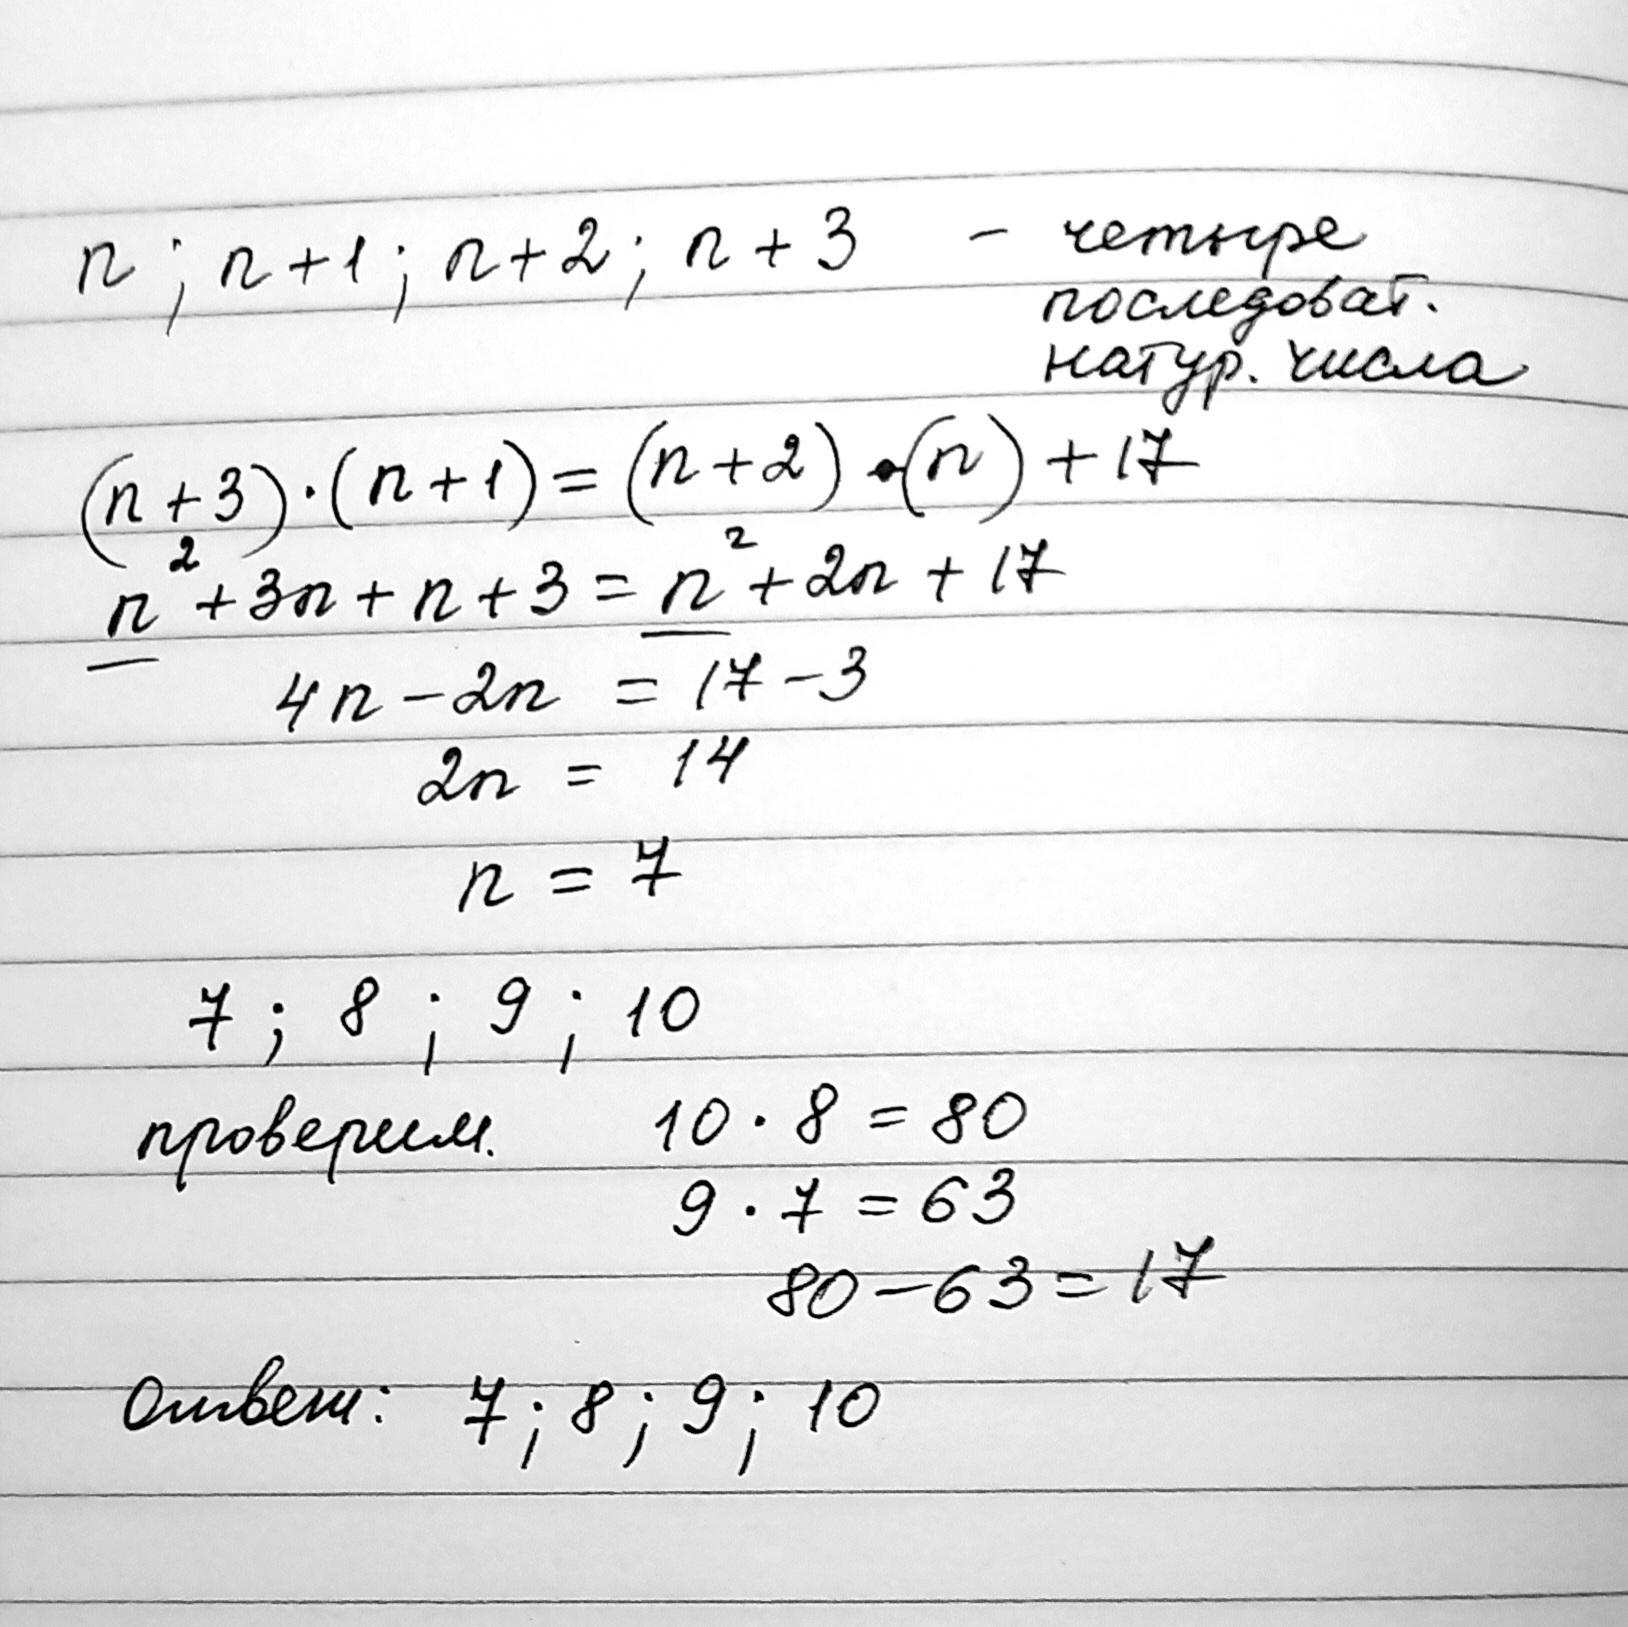 n; n+1; n+2; n+3 - четыре
последоват.
натур. числа
(n+3)·(n+1)=(n+2)·(n)+17
n²+3n+n+3=n²+2n+17
4n-2n = 17-3
2n = 14
n = 7
7; 8; 9; 10
проверим. 10·8=80
9·7=63
80-63=17
Ответ: 7; 8; 9; 10